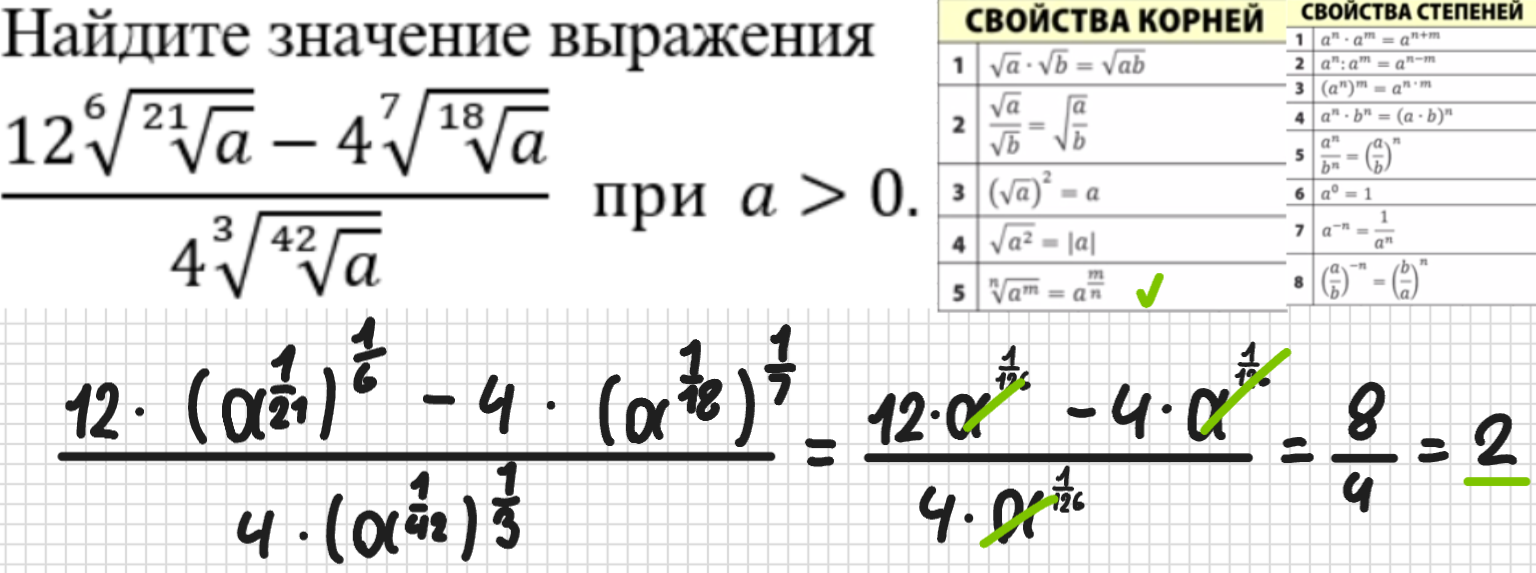 Найдите значение выражения
\frac{12\sqrt[6]{\sqrt[21]{a}} - 4\sqrt[7]{\sqrt[18]{a}}}{4\sqrt[3]{\sqrt[42]{a}}} при a > 0.
СВОЙСТВА КОРНЕЙ
1 √a · √b = √ab
2 \frac{√a}{√b} = \sqrt{\frac{a}{b}}
3 (√a)² = a
4 √a² = |a|
5 \sqrt[n]{a^m} = a^{\frac{m}{n}} ✓
СВОЙСТВА СТЕПЕНЕЙ
1 a^n · a^m = a^{n+m}
2 a^n : a^m = a^{n−m}
3 (a^n)^m = a^{n·m}
4 a^n · b^n = (a · b)^n
5 \frac{a^n}{b^n} = (\frac{a}{b})^n
6 a^0 = 1
7 a^{−n} = \frac{1}{a^n}
8 (\frac{a}{b})^{−n} = (\frac{b}{a})^n
\frac{12 · (a^{\frac{1}{21}})^{\frac{1}{6}} − 4 · (a^{\frac{1}{18}})^{\frac{1}{7}}}{4 · (a^{\frac{1}{42}})^{\frac{1}{3}}} = \frac{12 · a^{\frac{1}{126}} − 4 · a^{\frac{1}{126}}}{4 · a^{\frac{1}{126}}} = \frac{8}{4} = 2